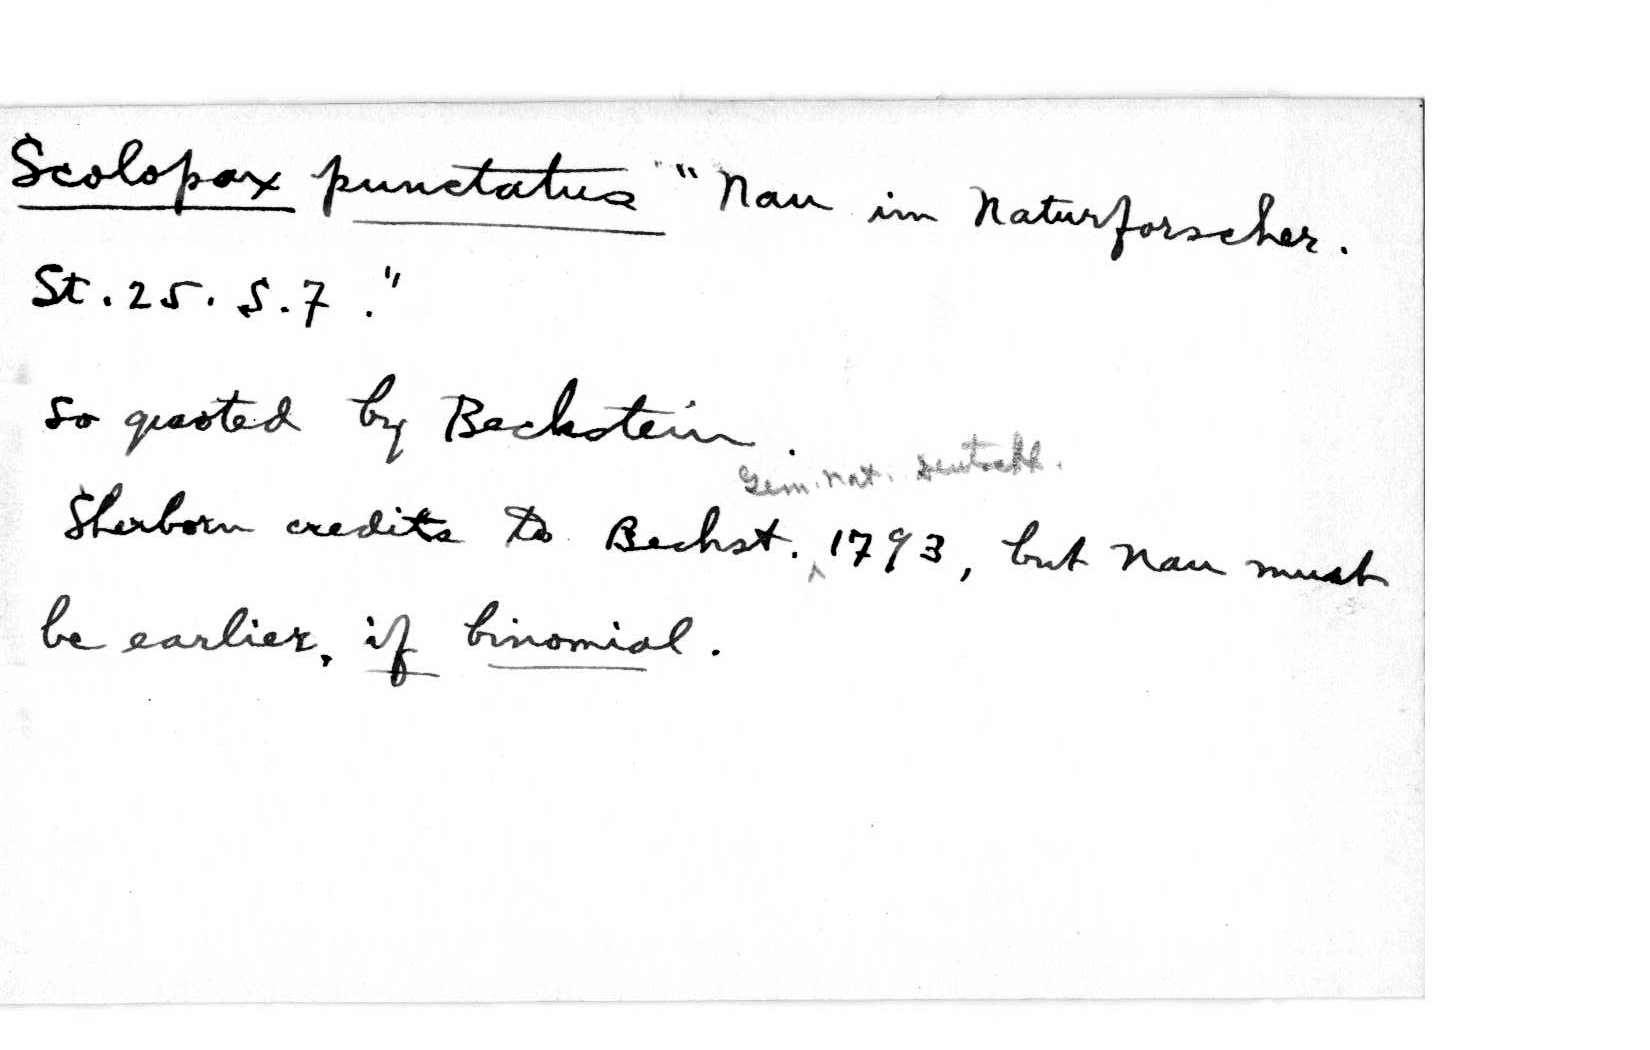 Scolopax punctatus "Nau im Naturforscher.
St. 25. S. 7."
So quoted by Bechstein.
Gem. Nat. Deutschl.
Sherborn credits to Bechst. ^ 1793, but Nau must
be earlier, if binomial.